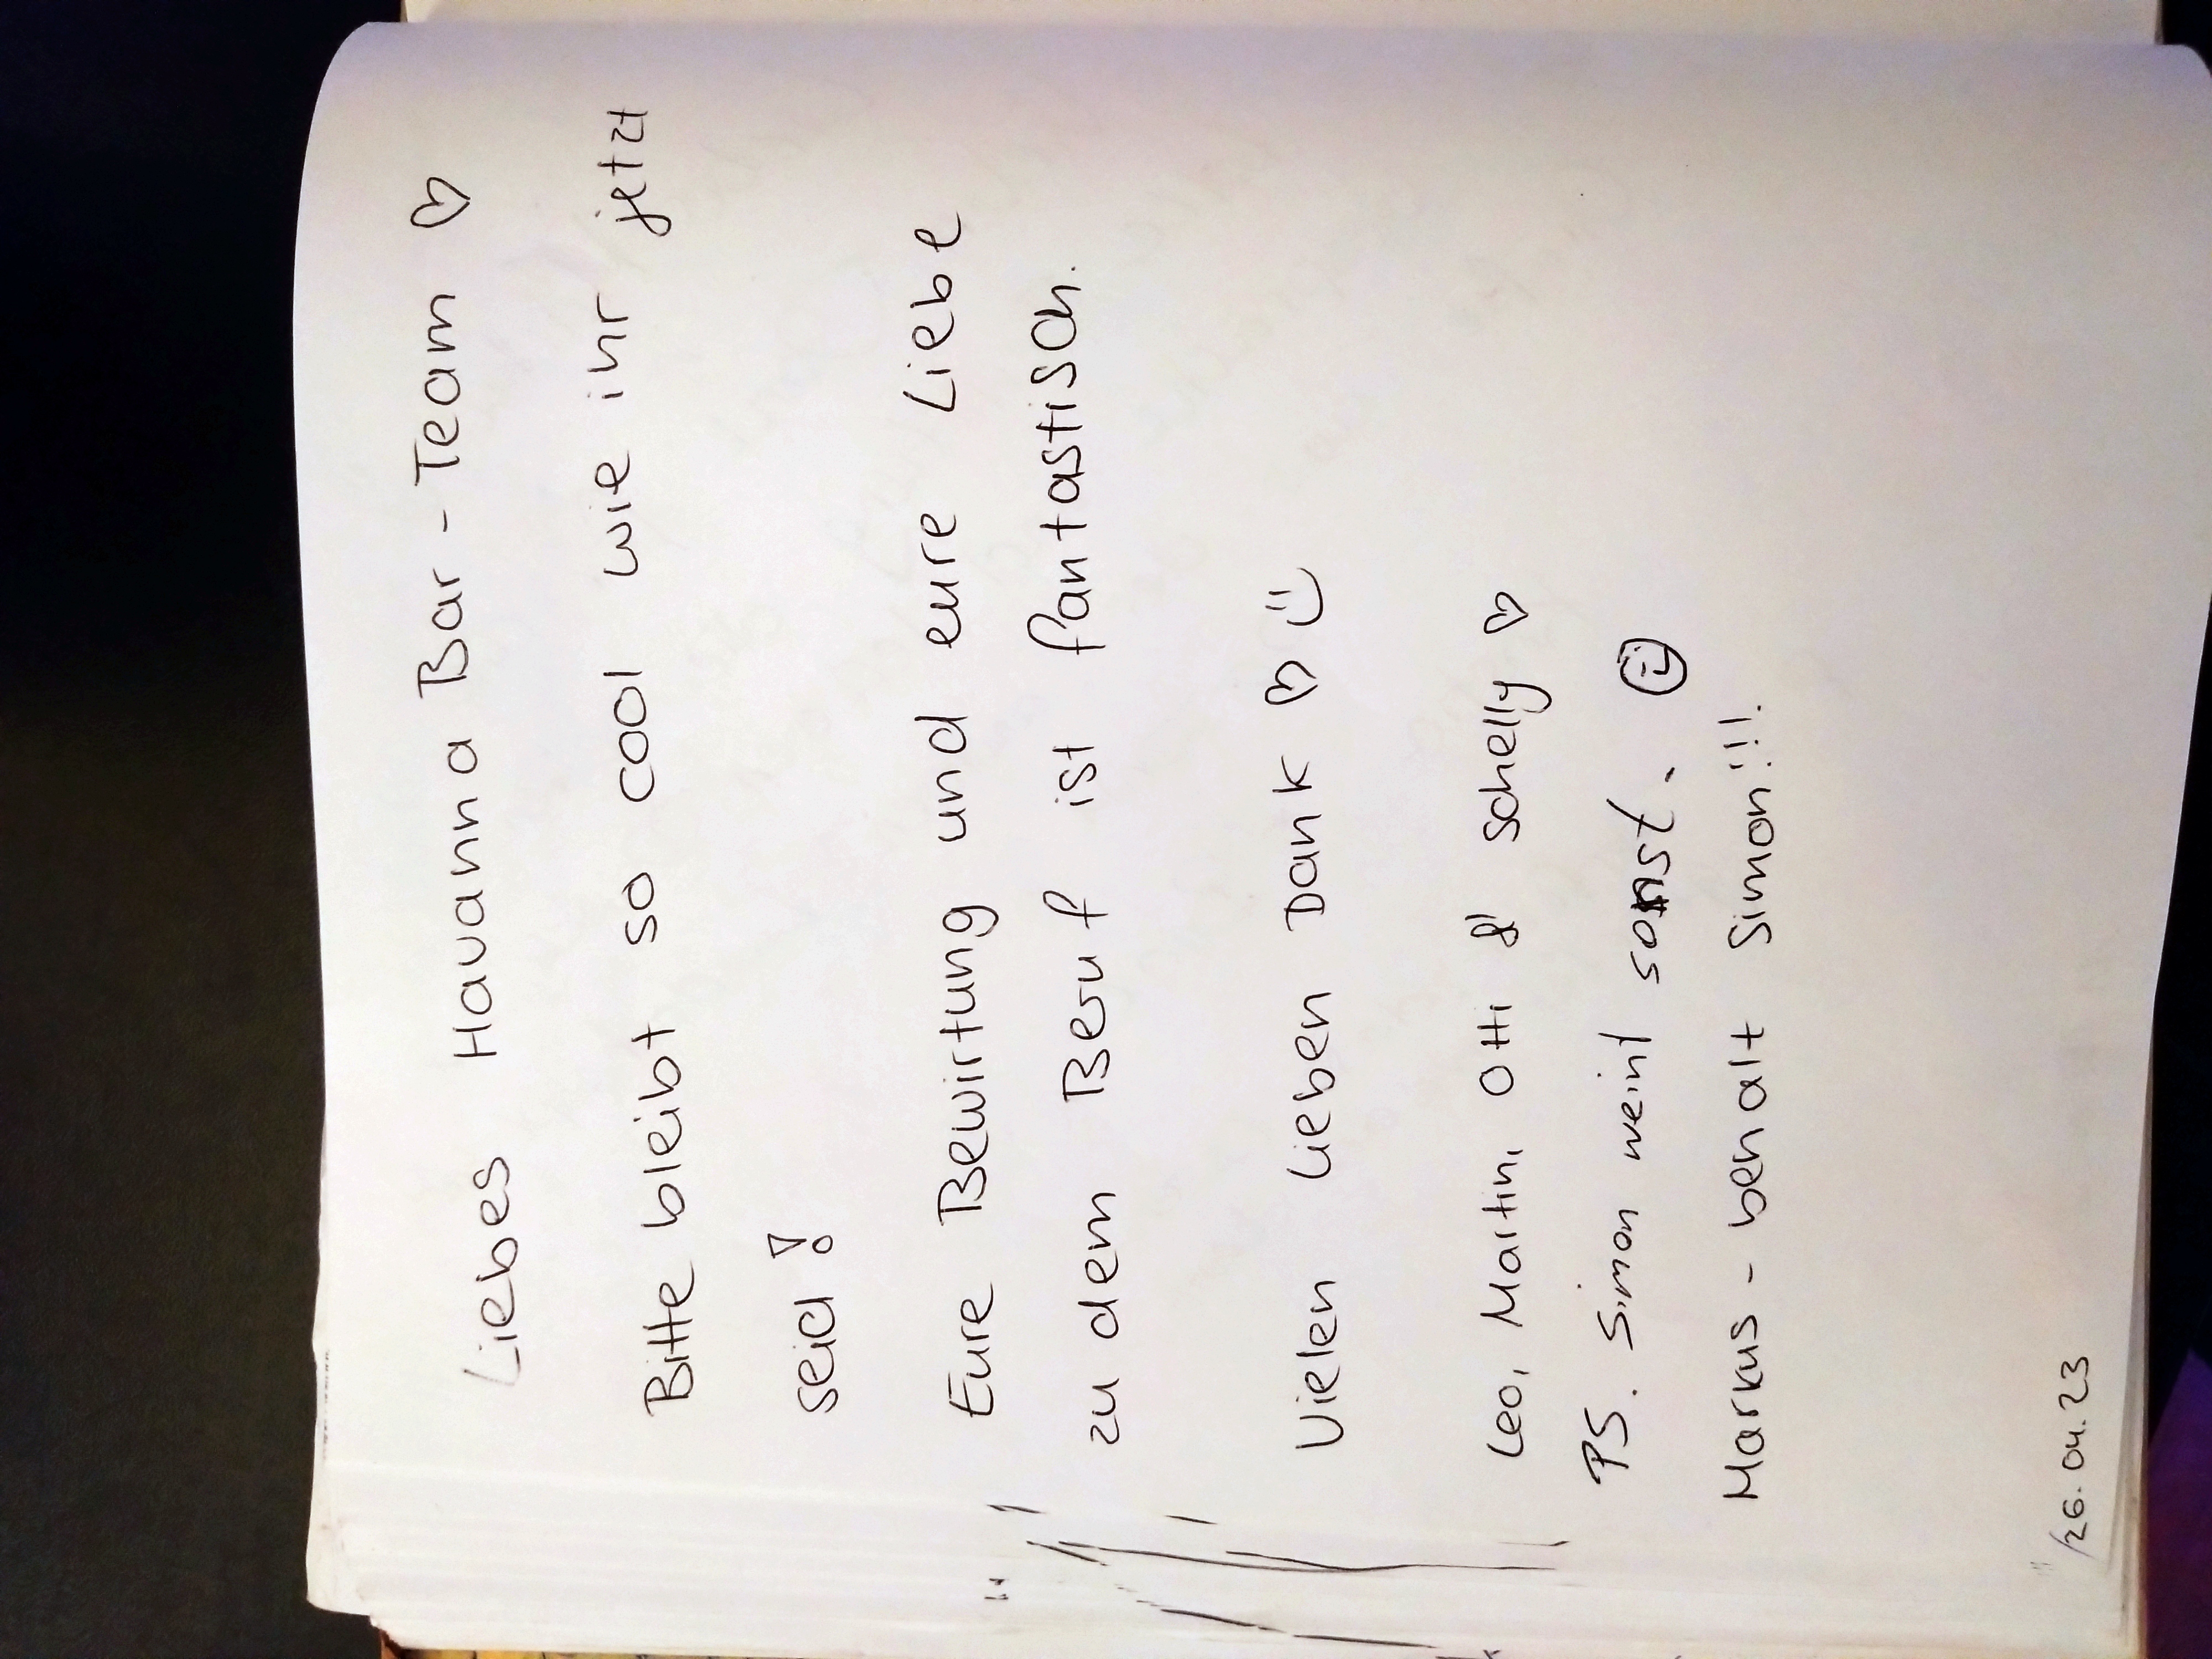 Liebes Havanna Bar - Team ♡
Bitte bleibt so cool wie ihr jetzt
seid!
Eure Bewirtung und eure Liebe
zu dem Beruf ist fantastisch.
Vielen lieben Dank ♡ :)
Leo, Martin, Otti & Schelly ♡
PS. Simon weint sonst. ☺
Markus - behalt Simon!!!.
26.04.23